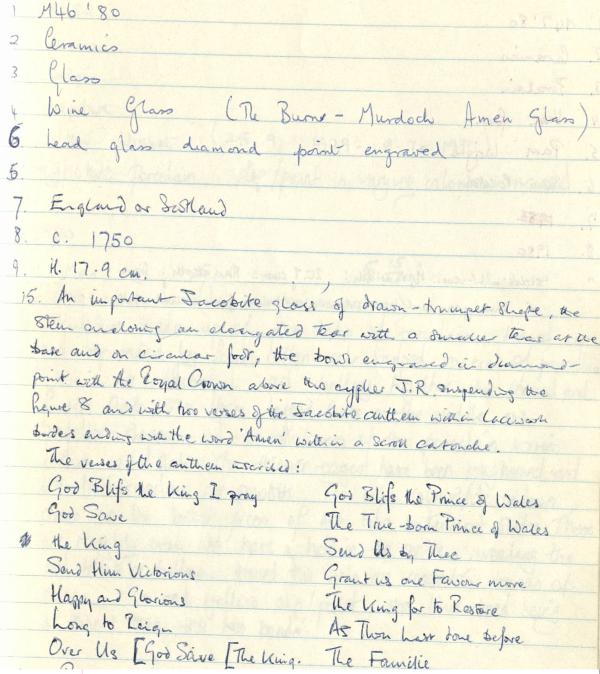 1 M46 '80
2 Ceramics
3 Glass
4 Wine Glass (The Burns-Murdoch Amen Glass)
6 Lead glass diamond point engraved
5.
7. England or Scotland
8. c. 1750
9. H. 17.9 cm.
15. An important Jacobite glass of drawn-trumpet shape, the
stem enclosing an elongated tear with a smaller tear at the
base and on circular foot, the bowl engraved in diamond-
point with the Royal Crown above the cypher J.R. suspending the
figure 8 and with two verses of the Jacobite anthem within lacework
borders ending with the word 'Amen' within a scroll cartouche.
The verses of the anthem inscribed:
God Blifs the King I pray
God Save
the King
Send Him Victorious
Happy and Glorious
Long to Reign
Over Us [God Save [The King.
God Blifs the Prince of Wales
The True-born Prince of Wales
Send Us by Thee
Grant us one Favour more
The King for to Restore
As Thou hast done before
The Familie